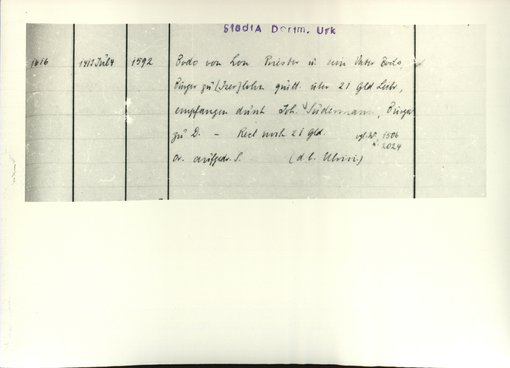 StadtA Dortm. Urk
1616 1418 Juli 4 1592 Bodo von Lon Priester u. sein Vater Bodo,
Bürger zu (Iser)lohn quitt. über 21 Gld Leibr.
empfangen durch Joh. Südermann, Bürger
zu D. - Rest noch 21 Gld. vgl. Nr. 1506
u. 2024
Or. aufgedr. S.